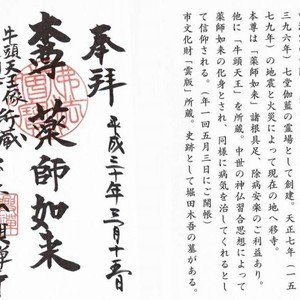 三九六年）七堂伽藍の霊場として創建。天正七年（一五
七九年）の地震と火災によって現在の地へ移寺。
本尊は「薬師如来」諸根具足、除病安楽のご利益あり。
他に「牛頭天王」を所蔵。中世の神仏習合思想によって
薬師如来の化身とされ、同様に病気を治してくれるとし
て信仰される。（年一回五月三日にご開帳）
市文化財「雲版」所蔵。史跡として堀田木吾の墓がある。
奉拝
平成三十年三月十五日
本尊 薬師如来
牛頭天王像所蔵